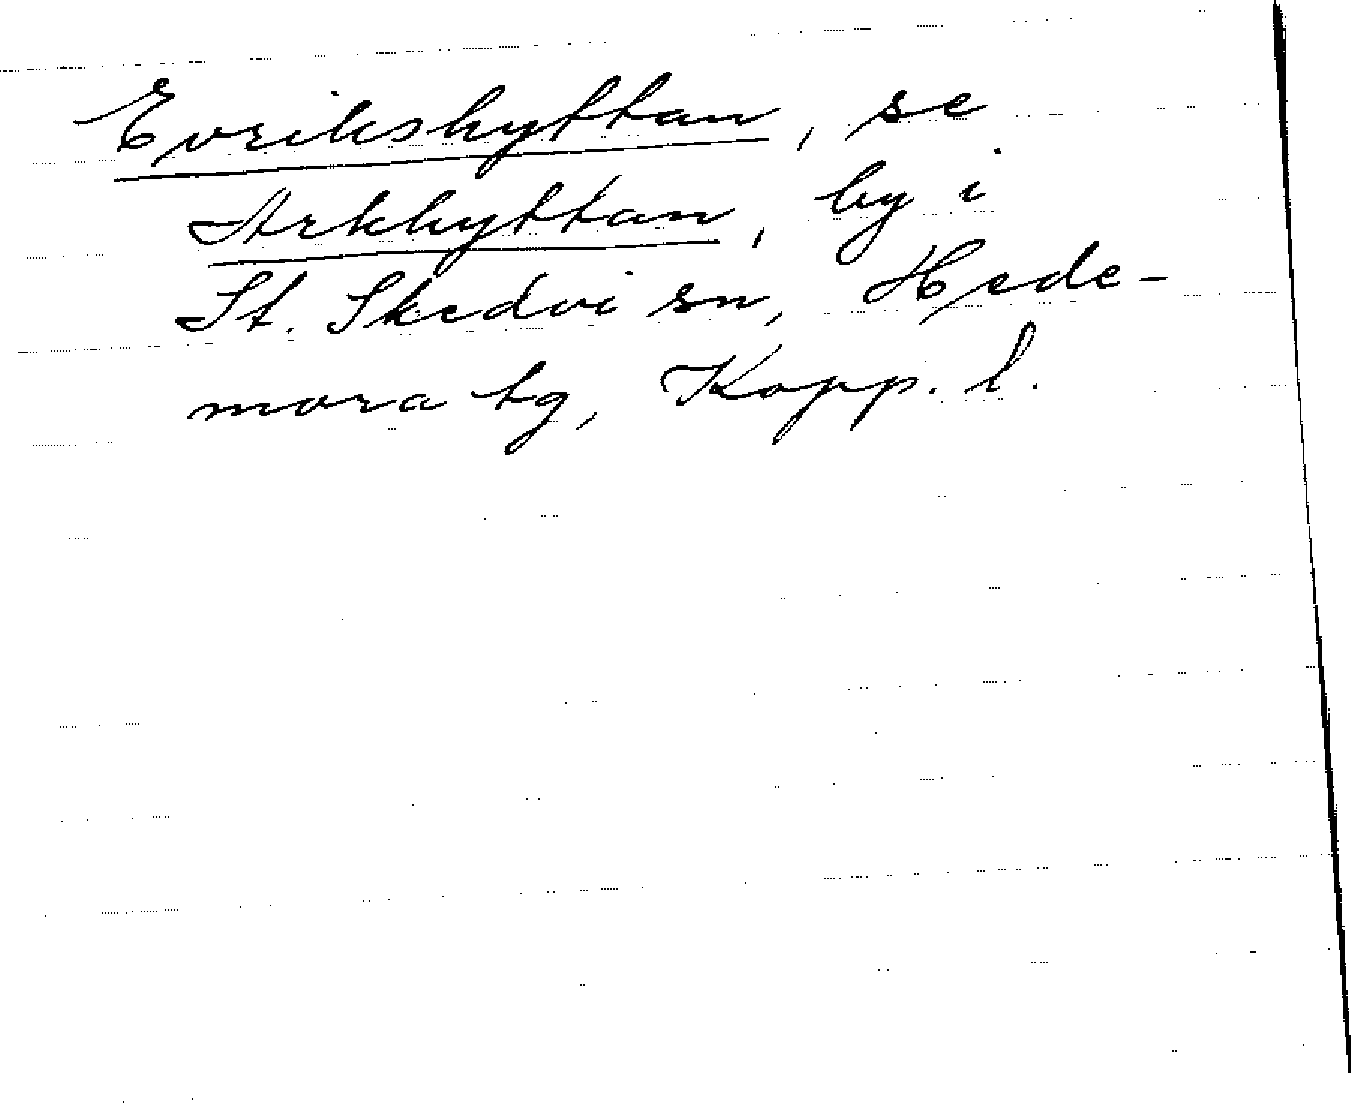 Evrikshyttan, se
Arkhyttan, by i
St. Skedvi sn, Hede-
mora tg, Kopp. l.